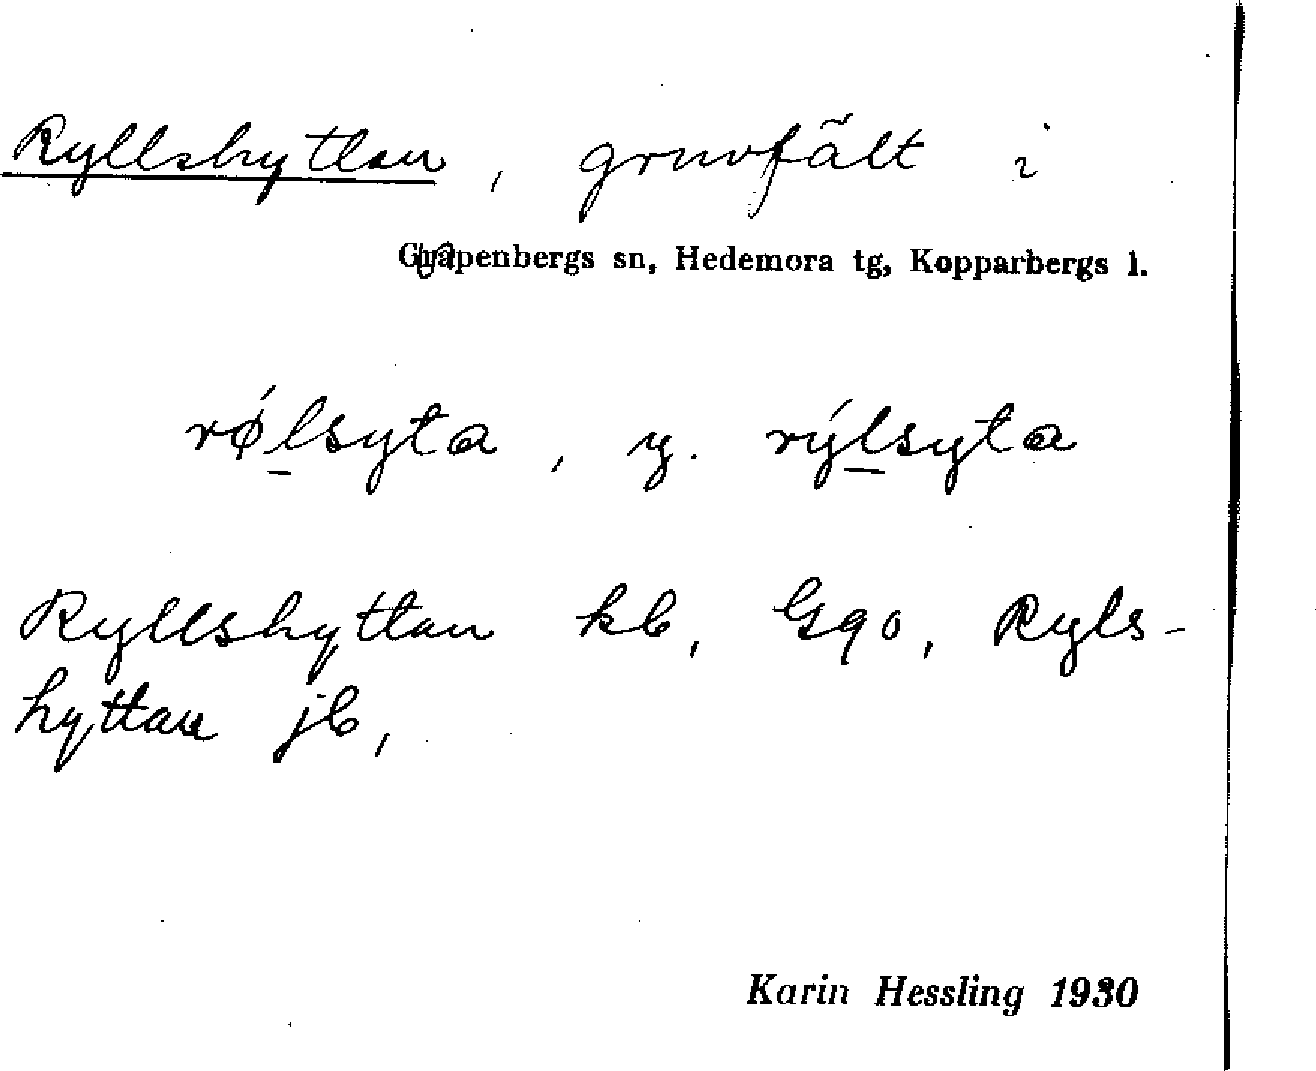 Ryllshyttan, gruvfält i
Garpenbergs sn, Hedemora tg, Kopparbergs l.
rǿlsyta, y. rýlsyta
Ryllshyttan kb, G90, Ryls-
hyttan jb,
Karin Hessling 1930